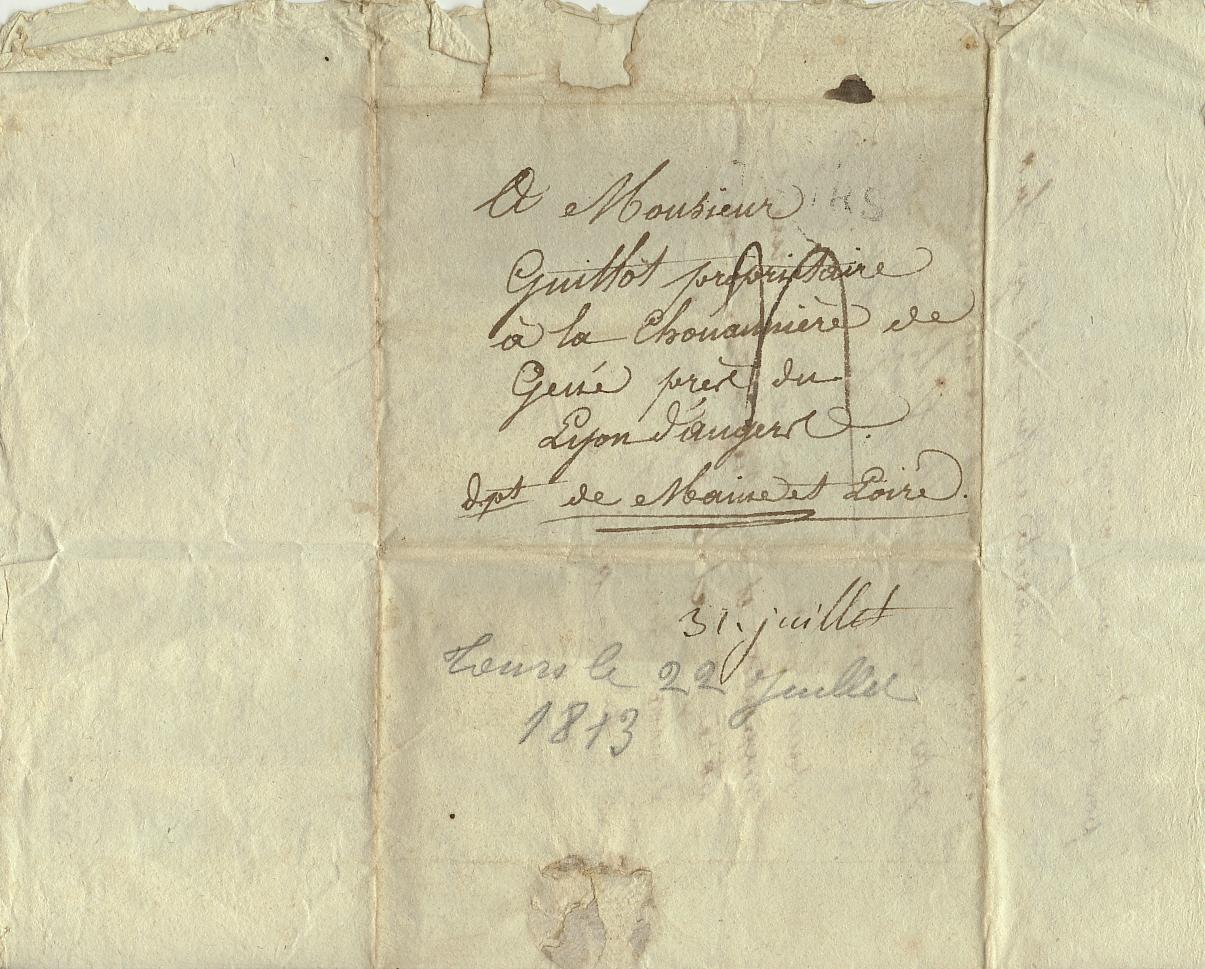 A Monsieur
Guittot propriétaire
à la Chouannière de
Gené près du
Lyon d'angers.
dpt de Maine et Loire.
31. juillet
Tours le 22 Juillet
1813